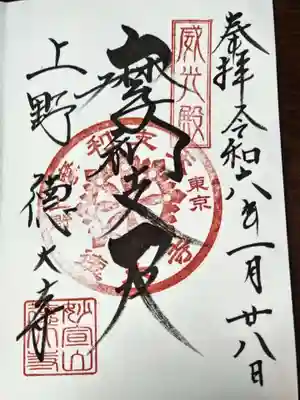 奉拝 令和六年一月廿八日
威光殿
摩利支天
東京
上野 徳大寺
妙宣山
徳大寺